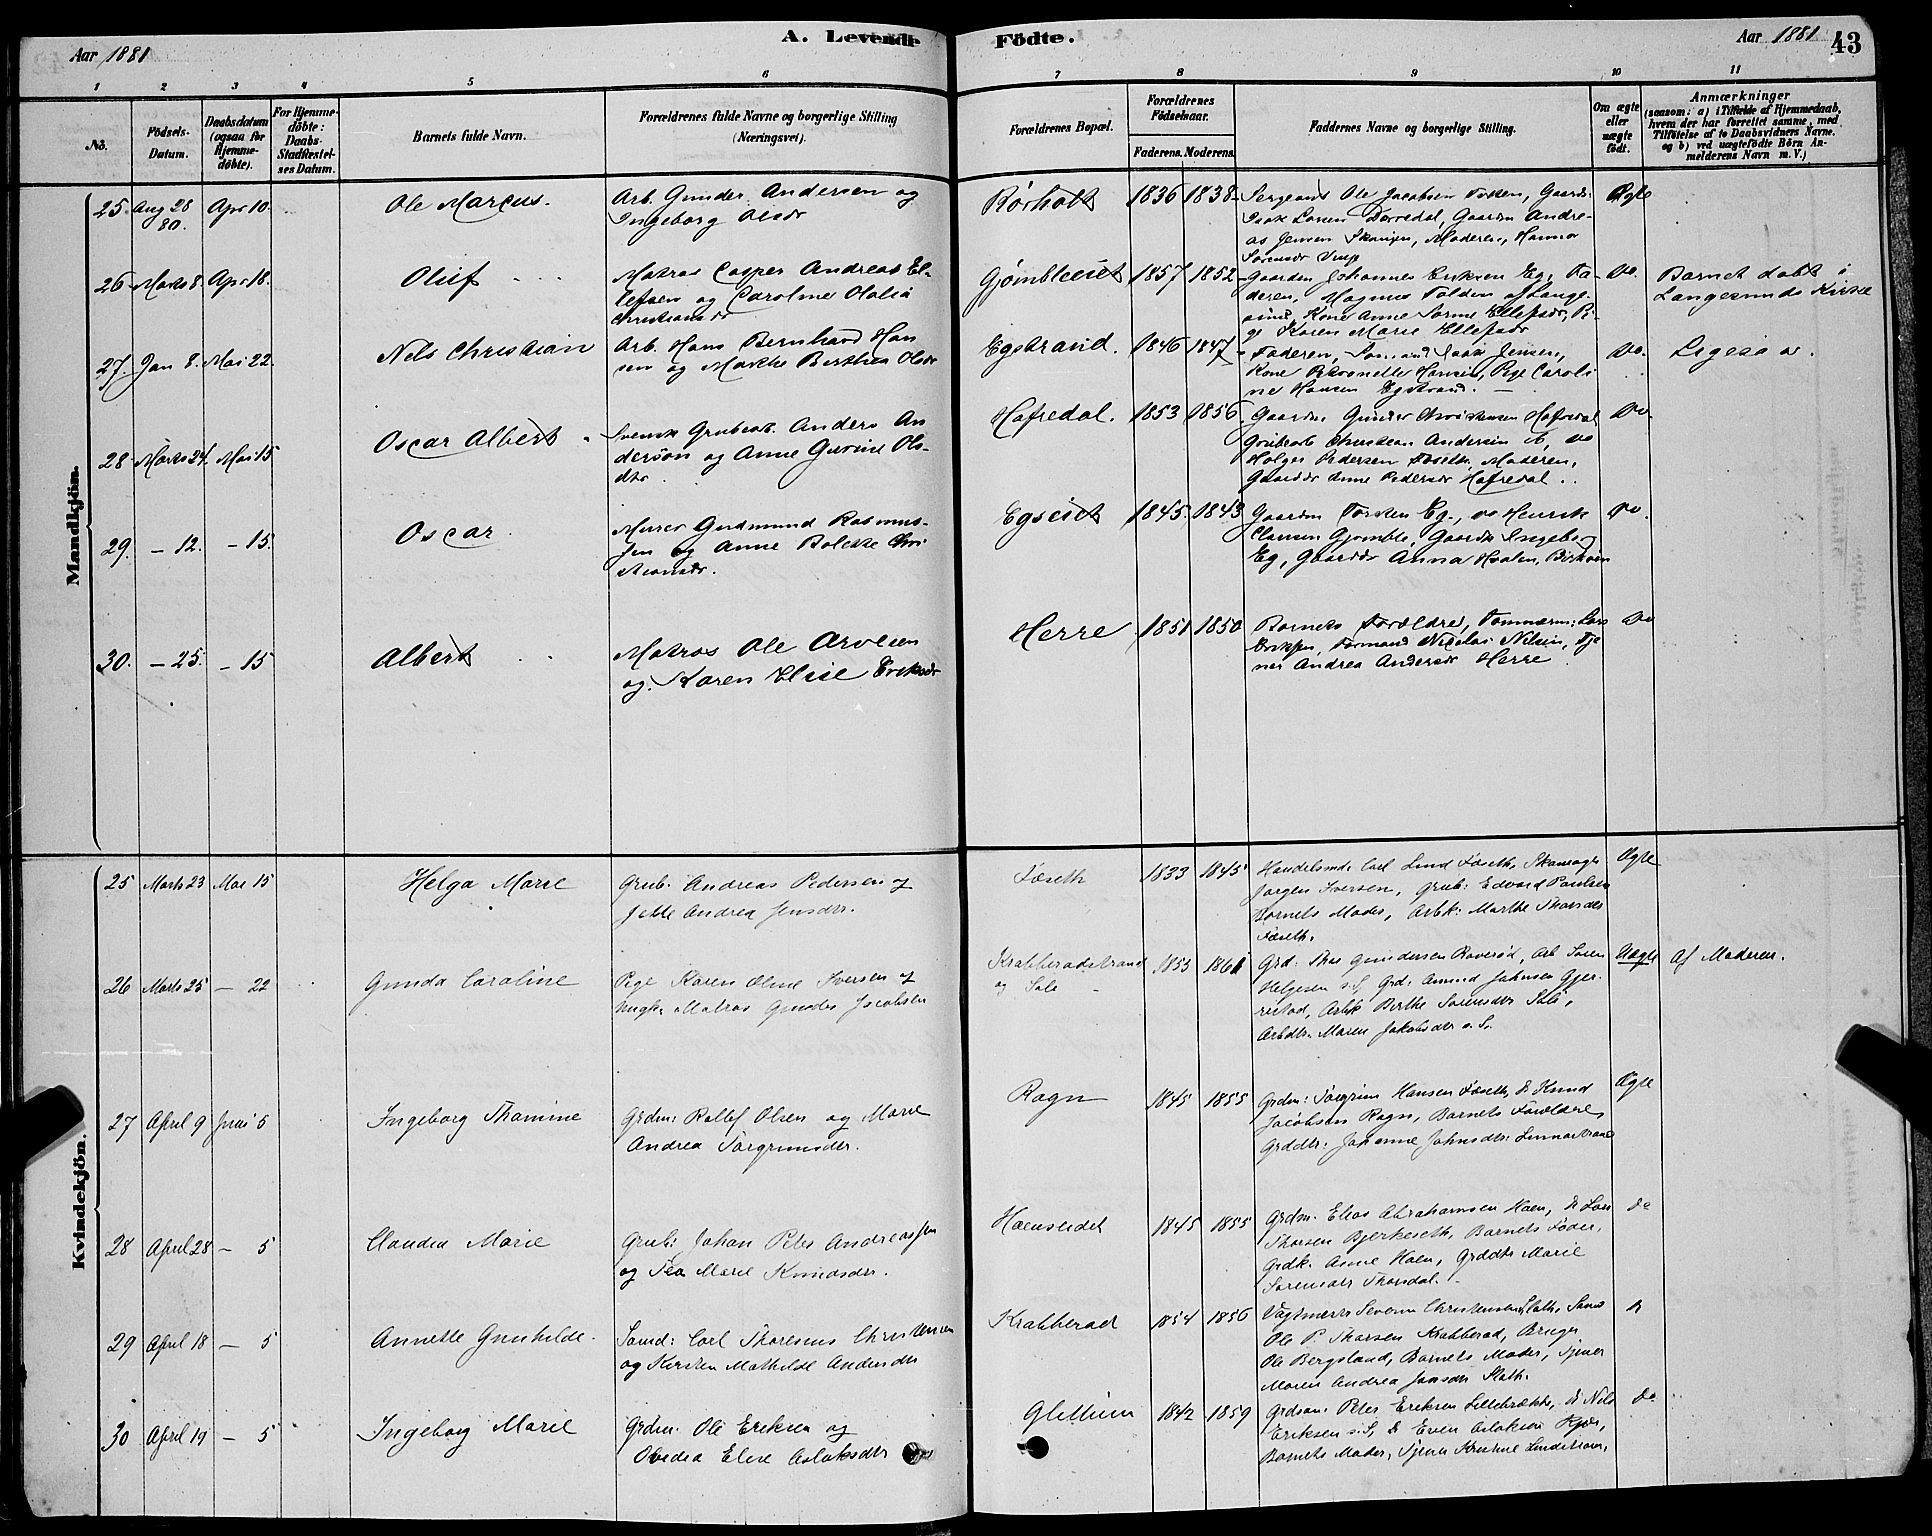 Aar 1881
A. Levende
Födte.
Aar 1881
43
1 2 3 4 5 6
7 8 9 10 11
No.
Födsels-Datum.
Daabsdatum (ogsaa for Hjemme-döbte).
For Hjemme-döbte: Daabs-Stadfæstel-ses Datum.
Barnets fulde Navn.
Forældrenes fulde Navne og borgerlige Stilling (Næringsvei).
Forældrenes Bopæl.
Forældrenes Födselsaar.
Faderens. Moderens.
Faddernes Navne og borgerlige Stilling.
Om ægte eller uægte födt.
Anmærkninger
(saasom: a) i Tilfælde af Hjemmedaab,
hvem der har forrettet samme, med
Tilföielse af to Daabsvidners Navne.
og b) ved uægtefödte Börn An-
melderens Navn m. V.)
Mandkjön.
25. Aug 28 80. Apr 10. Ole Marcus.
Arb. Gunder Andersen og
Ingeborg Olsdr
Rörholt 1836 1838
Sergeant Ole Jacobsen Gaardr.
Isak Larsen Dorredal, Gaardm Andre-
as Jensen Moderen, Hanna
Ægte
26 Marts 8. Apr 18. Oluf
Matros Casper Andreas El-
lefsen og Caroline Olalia
Christiansdr
Gjömbleeiet 1857 1852
Gaardm Johannes Eriksen Eg, Fa-
deren, Magnus Folden af Lange-
sund, Kone Anne Ellefsdr, Pi-
ge Karen Marie Ellefsdr
Do.
Barnet døbt i
Langesunds Kirke
27. Jan 8. Mai 22. Nels Christian
Arb. Hans Bernhard Han
sen og Marthe Berthea Olsdr
Egstrand. 1846 1847
Faderen, Isak Jensen,
Kone Hansen, Pige Caroli
ne Hansen Egstrand.
Do.
28 Marts 24. Mai 15 Oscar Albert
Svensk Grubearb. Anders An
derson og Anne Gurine Ols-
dtr.
Hafredal. 1853 1856
Gaardm Gunder Christensen Hafredal
Grubearb Christian Andersen do
Holger Pedersen Moderen,
Gaarddr Anne Pedersdr Hafredal
Do.
29. - 12. - 15. Oscar
Murer Gudmund Rasmus-
sen og Anne Bolette Chri
stiansdr.
Egseiet 1845. 1843
Gaardm Torsten Eg, do Henrik
Clausen Gjömble, Gaardk Ingeborg
Eg, Gaarddr Anna Haalen,
Do.
30. - 25. - 15 Albert
Matros Ole Arvesen
og Karen Elise Eriksdr
Herre 1851 1850
Barnets Forældre, Tömmerm: Lars
Eriksen, Formand Nicolai Nilsen, Tje
ner Andrea Andersdr Herre
Do
Kvindekjön.
25 Marts 23 Mai 15 Helga Marie
Grub. Andreas Pedersen og
Jette Andrea Jensdtr.
Föseth 1833 1845
Handelsmd. Carl Lund Föseth,
Jörgen Iversen, Grub: Edvard Paulsen
Barnets Moder, Arbk: Marthe Thorsdtr
Föseth.
Ægte
26 Marts 25 - 22 Gunda Caroline
Pige Karen Oline Iversen og
Ungk: Matros Gunder Jacobsen
Krabberødstrand
og Sole 1853 1861
Grd: Thor Gundersen Röveröd, Arb Sören
Helgesen s. S, Grd: Amund Johnsen Gjer-
restad, Arbk Berthe Sörensdtr Sole,
Arbdtr. Maren Jakobsdtr s. S.
Uægte Af Moderen.
27 April 9 Juni 5 Ingeborg Thomine
Grdm: Rollef Olsen og Marie
Andrea Torgrimsdtr.
Rogn 1845 1855
Grdm: Torgrim Hansen Föseth, do Knud
Jacobsen Rogn, Barnets Forældre
Grddtr: Johanne Johnsdtr:
Ægte
28 April 28 - 5 Claudia Marie
Grub: Johan Peter Andreassen
og Tea Marie Knudsdtr.
Haenseidet 1845 1855
Grdm. Elias Abrahamsen Haen, do Lars
Thorsen Bjerkeseth, Barnets Fader,
Grdk. Anne Haen, Grddtr Marie
Sörensdtr Thorsdal.
do
29 April 18 - 5 Annette Gunhilde.
Sömd: Carl Thoresius Christensen
og Kirsten Mathilde Andersdtr
Krabberød 1854 1856
Severin Christensen Sloth,
Ole P. Thorsen Krabberød, Bruger
Ole Bergsland, Barnets Moder, Tjener
Maren Andrea Jonsdtr Sloth.
do
30 April 19 - 5 Ingeborg Marie
Grdm. Ole Eriksen og
Ovedia Elise Aslaksdtr
Glittum 1842 1859
Grdsön. Peter Eriksen Lillebække, do Nils
Eriksen s. S, do Even Aslaksen
Barnets Moder, Tjener Lindstrøm,
do